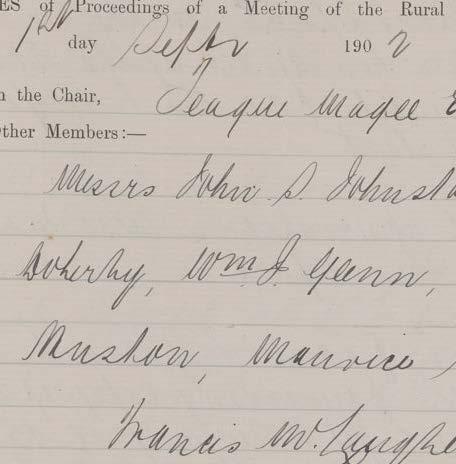 ES of Proceedings of a Meeting of the Rural
1st day Septr 1902
n the Chair, Teague Magee E
Other Members:—
Messrs John S. Johnsto
Doherty, Wm J. Glenn,
Muston, Maurice
Francis McLaughl